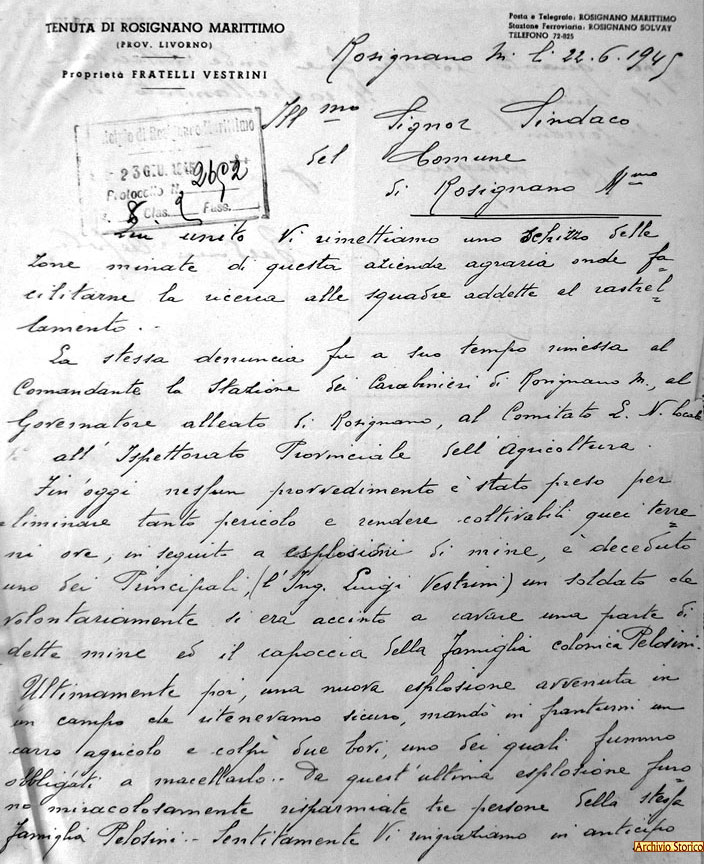 TENUTA DI ROSIGNANO MARITTIMO
(PROV. LIVORNO)
Proprietà FRATELLI VESTRINI
Posta e Telegrafo: ROSIGNANO MARITTIMO
Stazione Ferroviaria: ROSIGNANO SOLVAY
TELEFONO 72-825
Rosignano M. li 22.6.1945
Ill mo Signor Sindaco
del Comune
di Rosignano Mmo
di Rosignano Marittimo
23 GIU. 1945
Protocollo N. 2692
8 Clas. 2 Fasc.
In unito Vi rimettiamo uno schizzo delle
zone minate di questa azienda agraria onde fa=
cilitarne la ricerca alle squadre addette al rastrel=
lamento..
La stessa denuncia fu a suo tempo rimessa al
Comandante la Stazione dei Carabinieri di Rosignano M., al
Governatore alleato di Rosignano, al Comitato L. N. locale
all'Ispettorato Provinciale dell'Agricoltura.
Fin'oggi nessun provvedimento è stato preso per
eliminare tanto pericolo e rendere coltivabili quei terre=
ni ove, in seguito a esplosioni di mine, è deceduto
uno dei Principali, (l'Ing. Luigi Vestrini) un soldato che
volontariamente si era accinto a cavare una parte di
dette mine ed il capoccia della famiglia colonica Pelosini.
Ultimamente poi, una nuova esplosione avvenuta in
un campo che ritenevamo sicuro, mandò in frantumi un
carro agricolo e colpì due bovi, uno dei quali fummo
obbligati a macellarlo.. Da quest'ultima esplosione furo=
no miracolosamente risparmiate tre persone della stessa
famiglia Pelosini.. Sentitamente Vi ringraziamo in anticipo
Archivio Storico